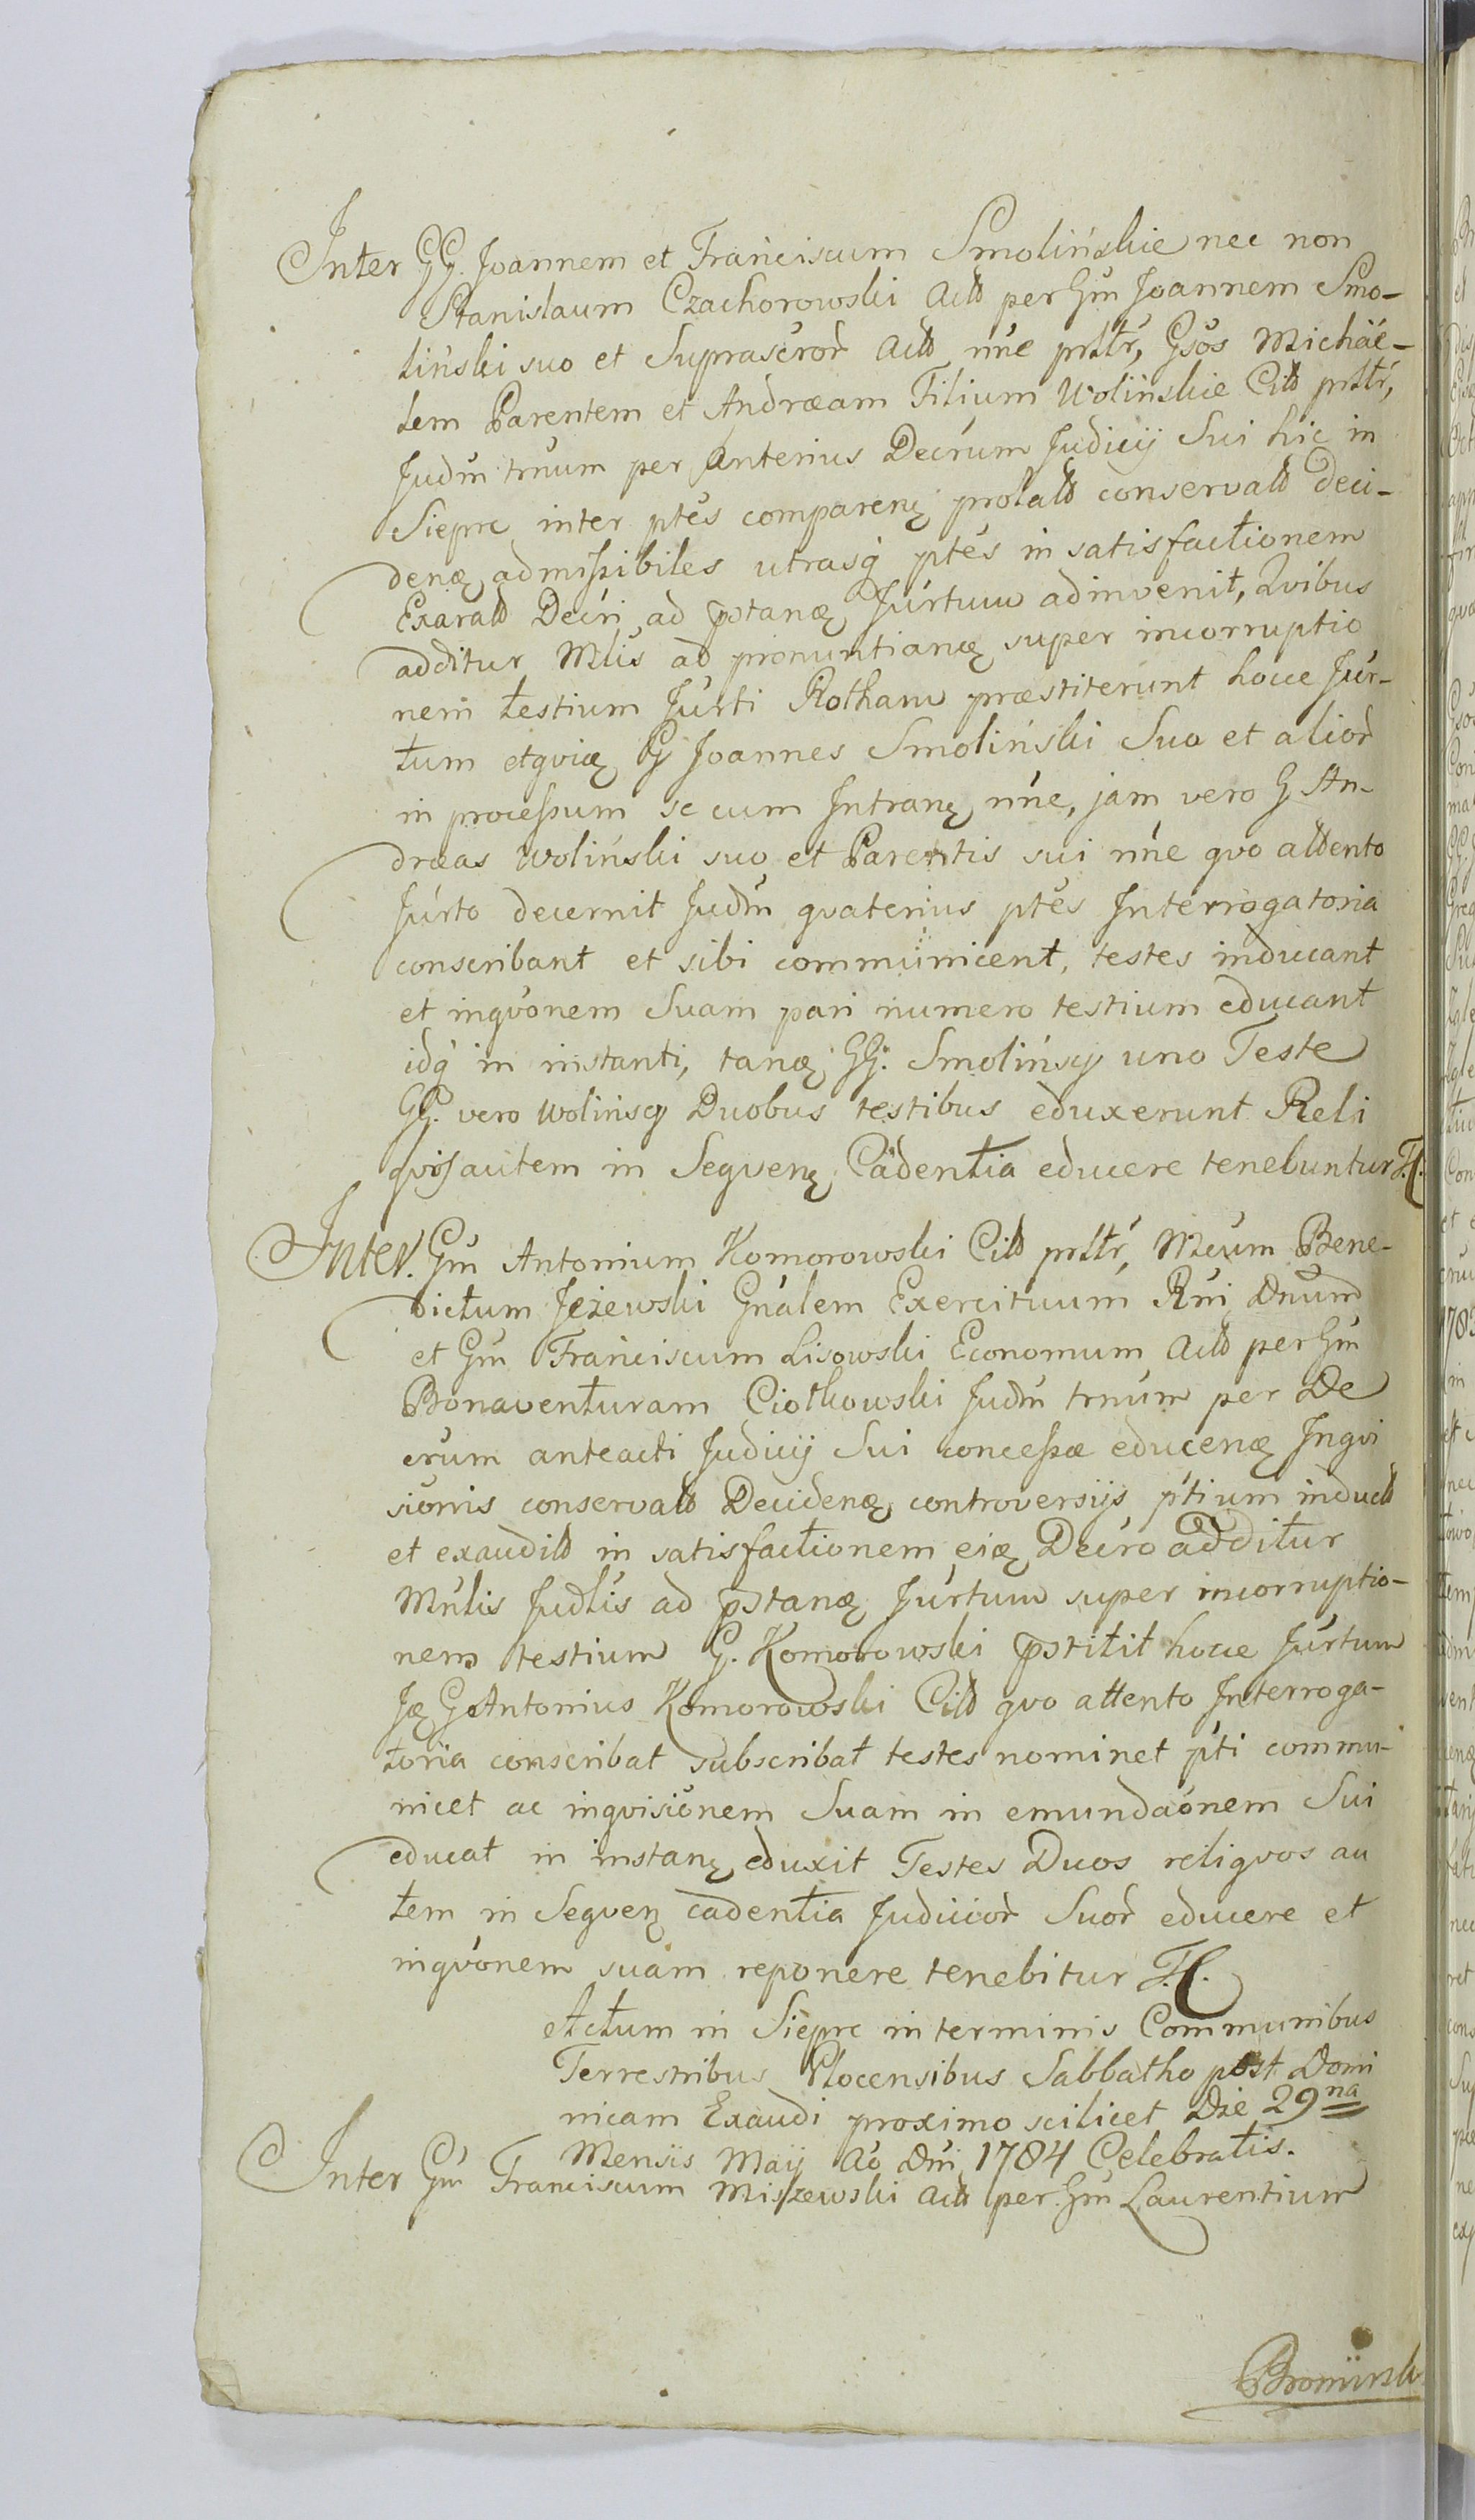 Inter GG. Joannem et Franciscum Smolińskie nec non
Stanislaum Czachorowski Actt per Gm Joannem Smo-
liński suo et Suprascror Actt nne prttr, Gsos Michäe-
lem Parentem et Andræam Filium Wolińskie Citt prttr,
Judm trnum per anterius Decrum Judicij Sui hic in
Sieprc inter ptes comparenę prolatt conservatt deci-
denę admissibiles utrasq ptes in satisfactionem
Exaratt Decri ad pstanę Jurtum adinvenit, Qvibus
additur Mlis ad pronuntianę super incorruptio
nem testium Jurti Rotham præstiterunt hocce Jur-
tum etqvię G Joannes Smoliński Suo et alior
in processum se cum Intranę nne, jam vero G An-
dræas Woliński suo et Parentis sui nne qvo attento
Jurto decernit Judm qvatenus ptes Interrogatoria
conscribant et sibi communicent, testes inducant
et inqvonem Suam pari numero testium educant
idq in instanti, tanę GG. Smolińscy uno Teste
GG. vero Wolińscy Duobus testibus eduxerunt Reli
qvis autem in Seqvenę Cadentia educere tenebuntur T.C.
Inter. Gm Antonium Komorowski Citt prttr, Meum Bene-
dictum Jeżewski Gnalem Exercituum Rni Dnum
et Gm Franciscum Lisowski Economum Actt per Gm
Bonaventuram Ciołkowski Judm trnum per De
crum anteacti Judicij Sui concessæ educenę Inqvi
sionis conservatt Decidenę controversijs ptium inductt
et exauditt in satisfactionem eię Decro additur
Mnlis Judlis ad pstanę Jurtum super incorruptio-
nem testium G. Komorowski pstitit hocce Jurtum
Ję G Antonius Komorowski Citt qvo attento Interroga-
toria conscribat subscribat testes nominet pti commu-
nicet ac inqvisionem Suam in emundaonem Sui
educat in instanę eduxit Testes Duos reliqvos au
tem in Seqvenę cadentia Judicior Suor educere et
inqvonem suam reponere tenebitur T.C.
Actum in Sieprc in terminis Communibus
Terrestribus Plocensibus Sabbatho post Domi
nicam Exaudi proximo scilicet Die 29na
Mensis Maij Ao Dni 1784 Celebratis.
Inter Gm Franciscum Miszewski Actt per Gm Laurentium